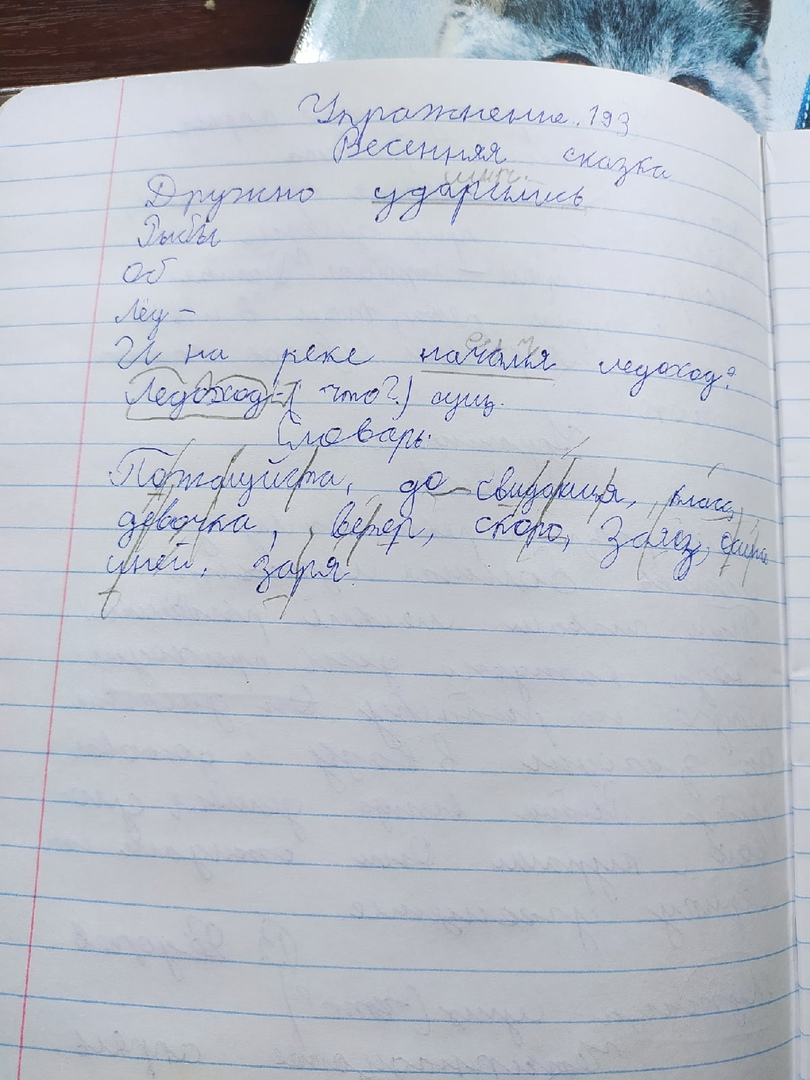 Упражнение. 193
Весенняя сказка
Дружно ударились
Рыбы
Об
Лёд -
И на реке началя ледоход?
Ледоход - ( что?) сущ.
Словарь.
Пожалуйста, до свидания, класс,
девочка, ветер, скоро, Заяц,
иней. заря.